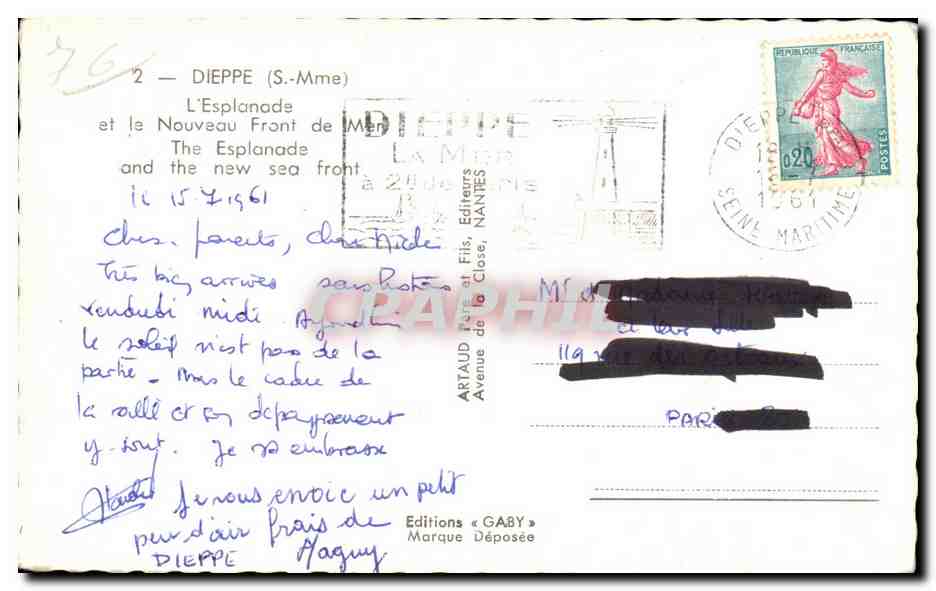 76
2 — DIEPPE (S.-Mme)
L'Esplanade
et le Nouveau Front de Mer
The Esplanade
and the new sea front
DIEPPE
LA MER
à 2h de Paris
DIEPPE
18
1961
SEINE MARITIME
REPUBLIQUE FRANÇAISE
0,20
POSTES
le 15.7.1961
Chers parents, chère
Très bien arrivés sans histoire
vendredi midi
le soleil n'est pas de la
partie. Mais le cadre de
la ville et son dépaysement
y sont. Je vs embrasse
Je vous envoie un petit
peu d'air frais de
DIEPPE Maguy
ARTAUD Père et Fils, Editeurs
Avenue de la Close, NANTES
CPAPHIL
Mr et Madame
et leur fille
119 rue des
PARIS
Editions « GABY »
Marque Déposée